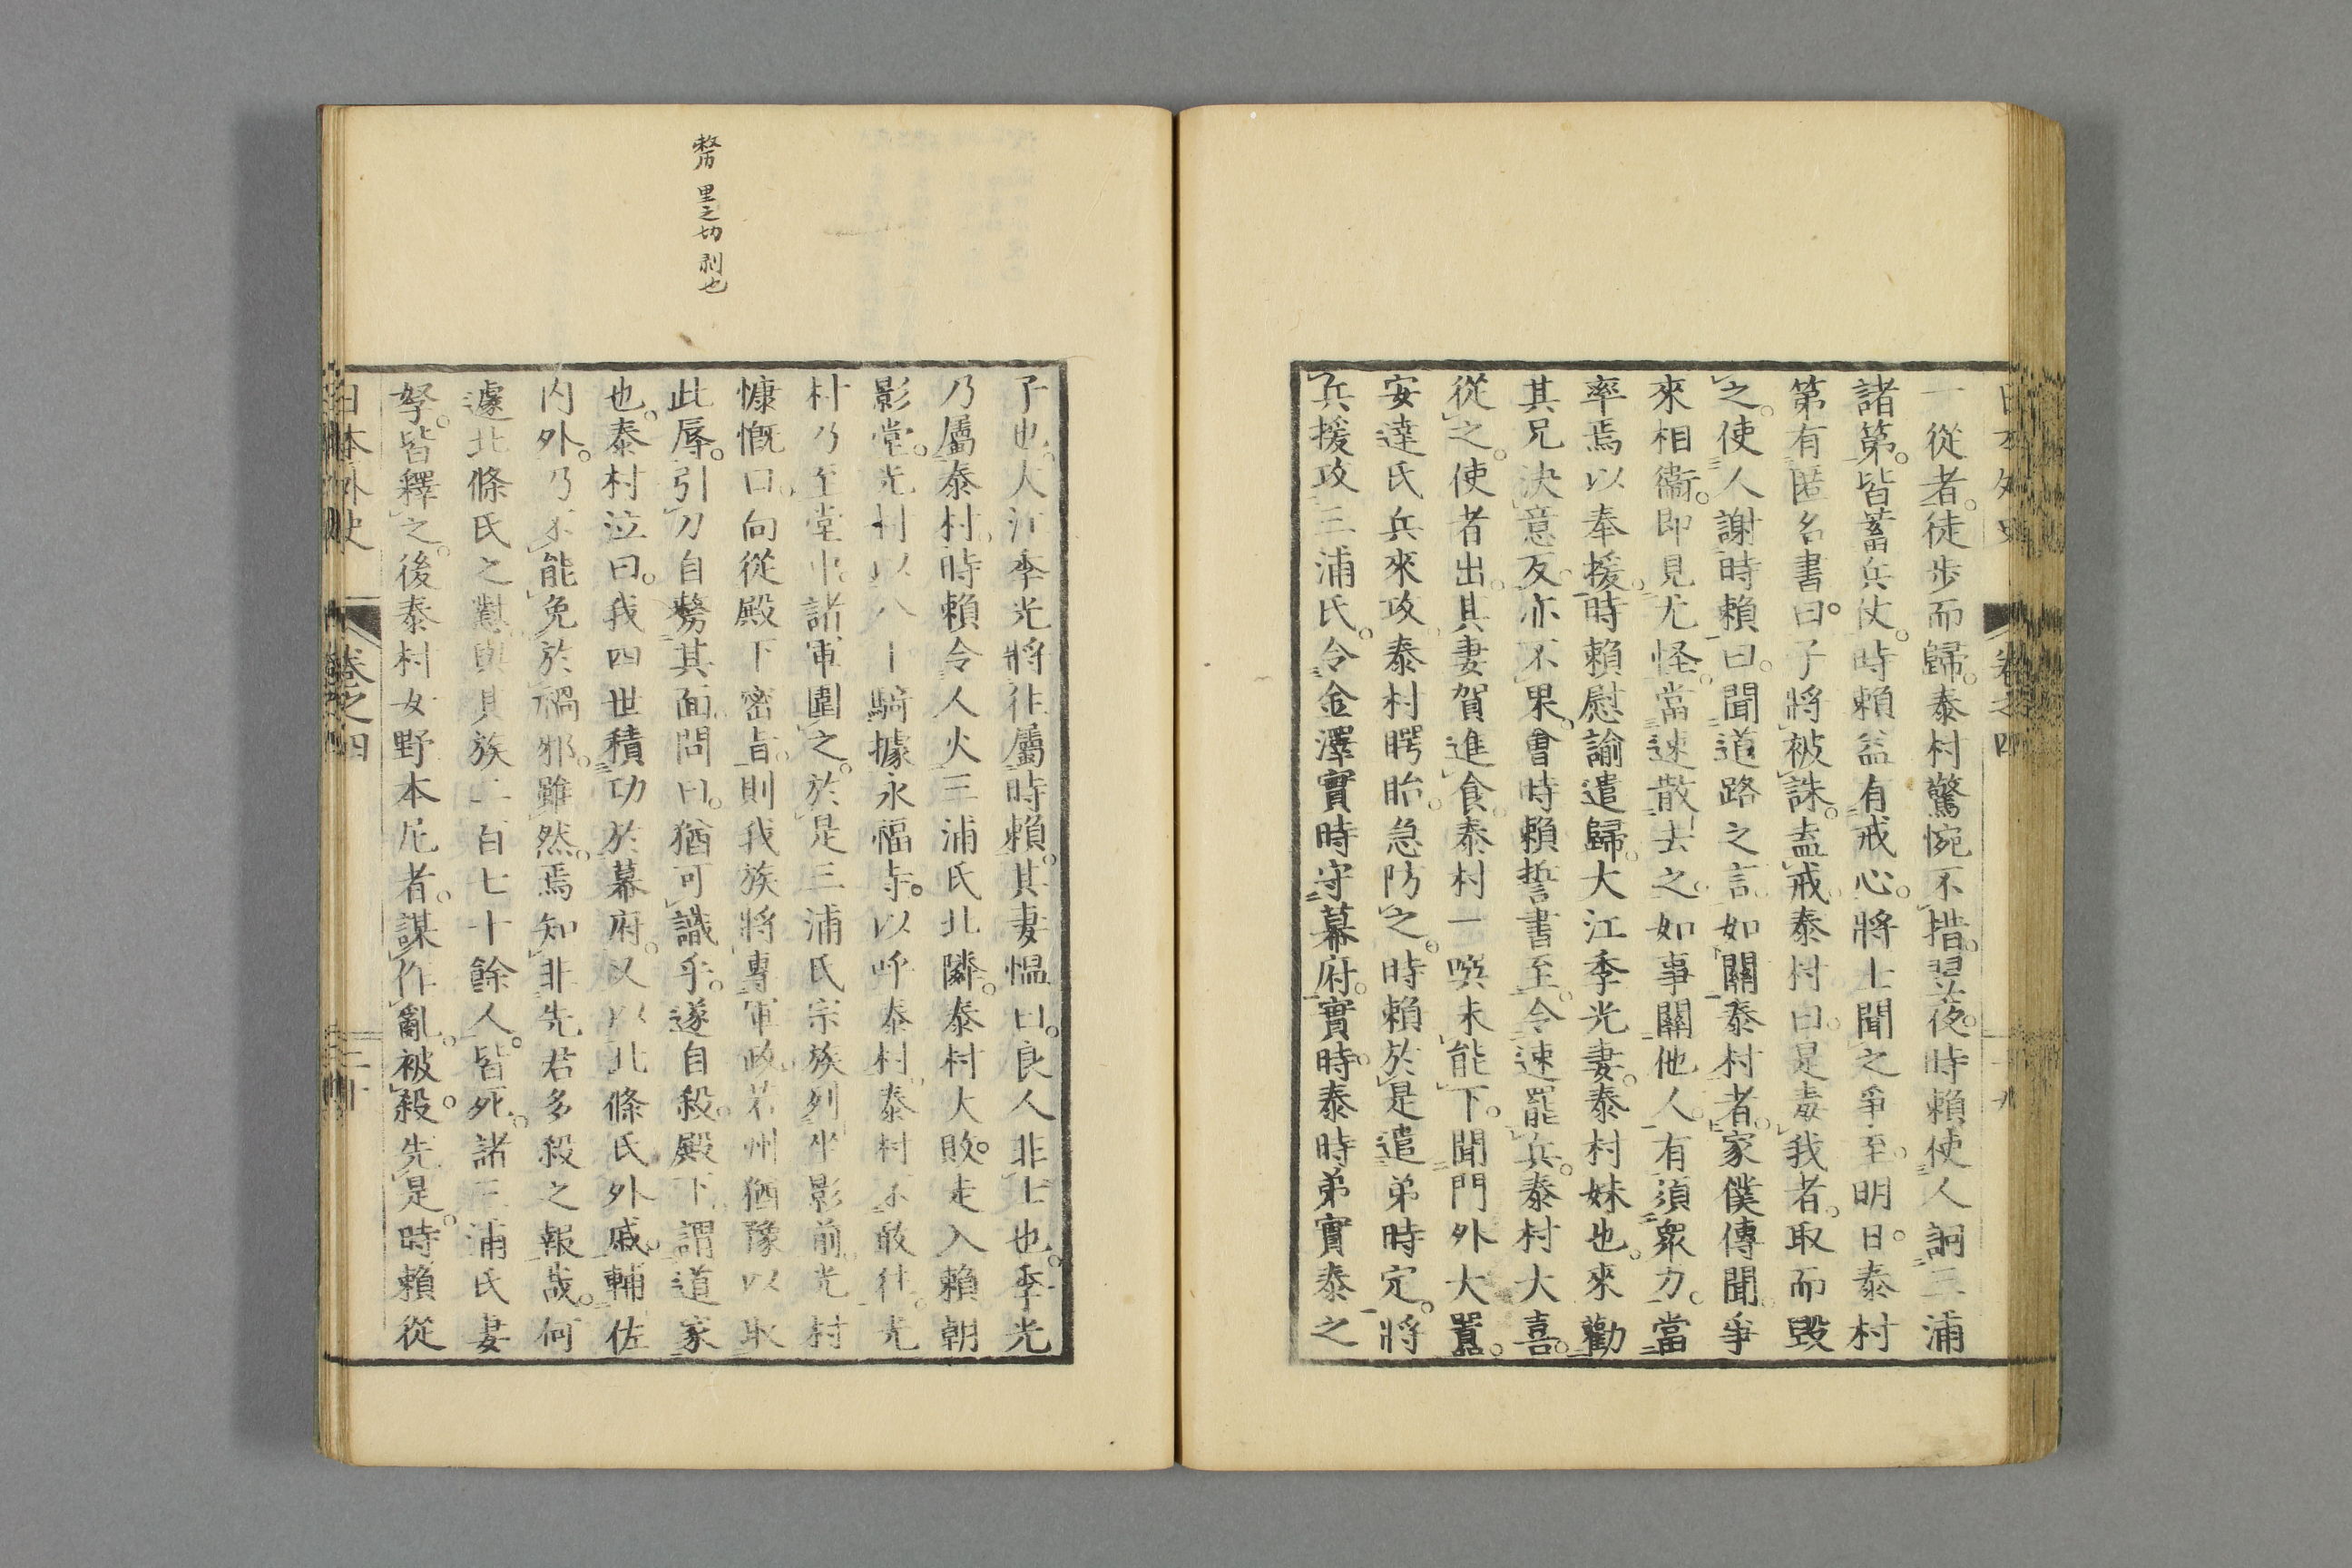 日本外史 卷之四 十九
一從者。徒步而歸。泰村驚惋不措。翌夜。時賴使人詗三浦
諸第。皆蓄兵仗。時賴益有戒心。將士聞之爭至。明日。泰村
第有匿名書曰。子將被誅。盍戒泰村曰。是毒我者。取而毀
之。使人謝時賴曰。聞道路之言。如關泰村者。家僕傳聞。爭
來相衞。即見尤怪。當速散去之。如事關他人。有須衆力。當
率焉以奉援。時賴慰諭遣歸。大江季光妻。泰村妹也。來勸
其兄決意反。亦不果。會時賴誓書至。令速罷兵。泰村大喜。
從之。使者出。其妻賀進食。泰村一喫未能下。聞門外大囂。
安達氏兵來攻。泰村腭眙。急防之。時賴於是遣弟時定。將
兵援攻三浦氏。令金澤實時守幕府。實時。泰時弟實泰之
子也。大江季光將往屬時賴。其妻慍曰。良人非士也。季光
乃屬泰村。時賴令人火三浦氏北隣。泰村大敗。走入賴朝
影堂。光村以八十騎據永福寺。以呼泰村。泰村不敢往。光
村乃至堂中。諸軍圍之。於是三浦氏宗族列坐影前。光村
慷慨曰。向從殿下密旨。則我族將專軍政。若州猶豫以取
此辱。引刀自剺其面。問曰。猶可識乎。遂自殺。殿下。謂道家
也。泰村泣曰。我四世積功於幕府。又以北條氏外戚。輔佐
內外。乃不能免於禍邪。雖然。焉知非先君多殺之報哉。何
遽北條氏之懟。與其族二百七十餘人。皆死。諸三浦氏妻
孥。皆釋之。後泰村女野本尼者。謀作亂。被殺。先是。時賴從
日本外史 卷之四 二十
剺 里之切 剥也